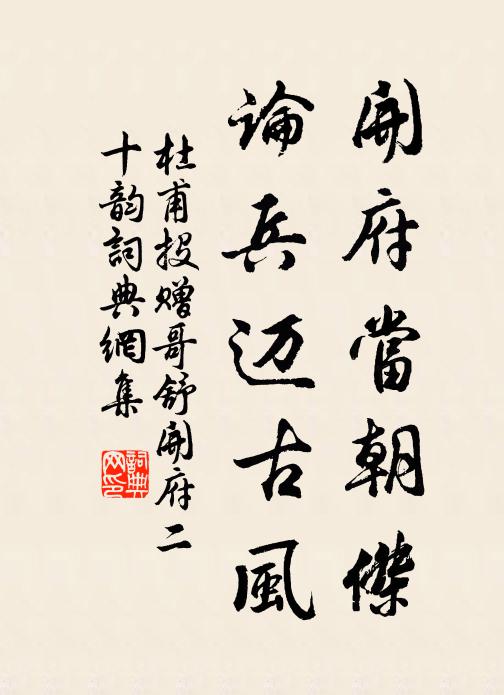 開府當朝傑
論兵迈古風
杜甫投贈哥舒開府二
十韵詞典網集
詞典
网印